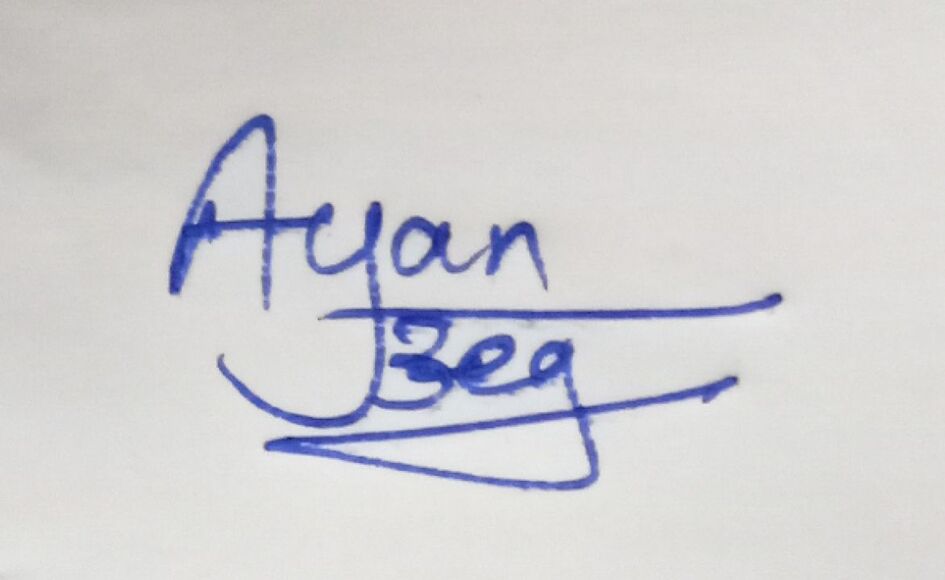 Ayan
Beg